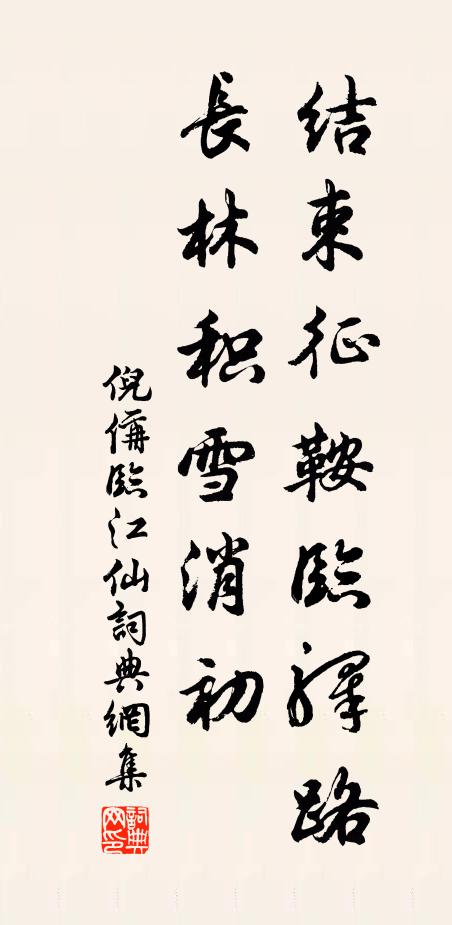 结束征鞍臨驛路
長林积雪消初
倪偁臨江仙詞典網集
詞典网印